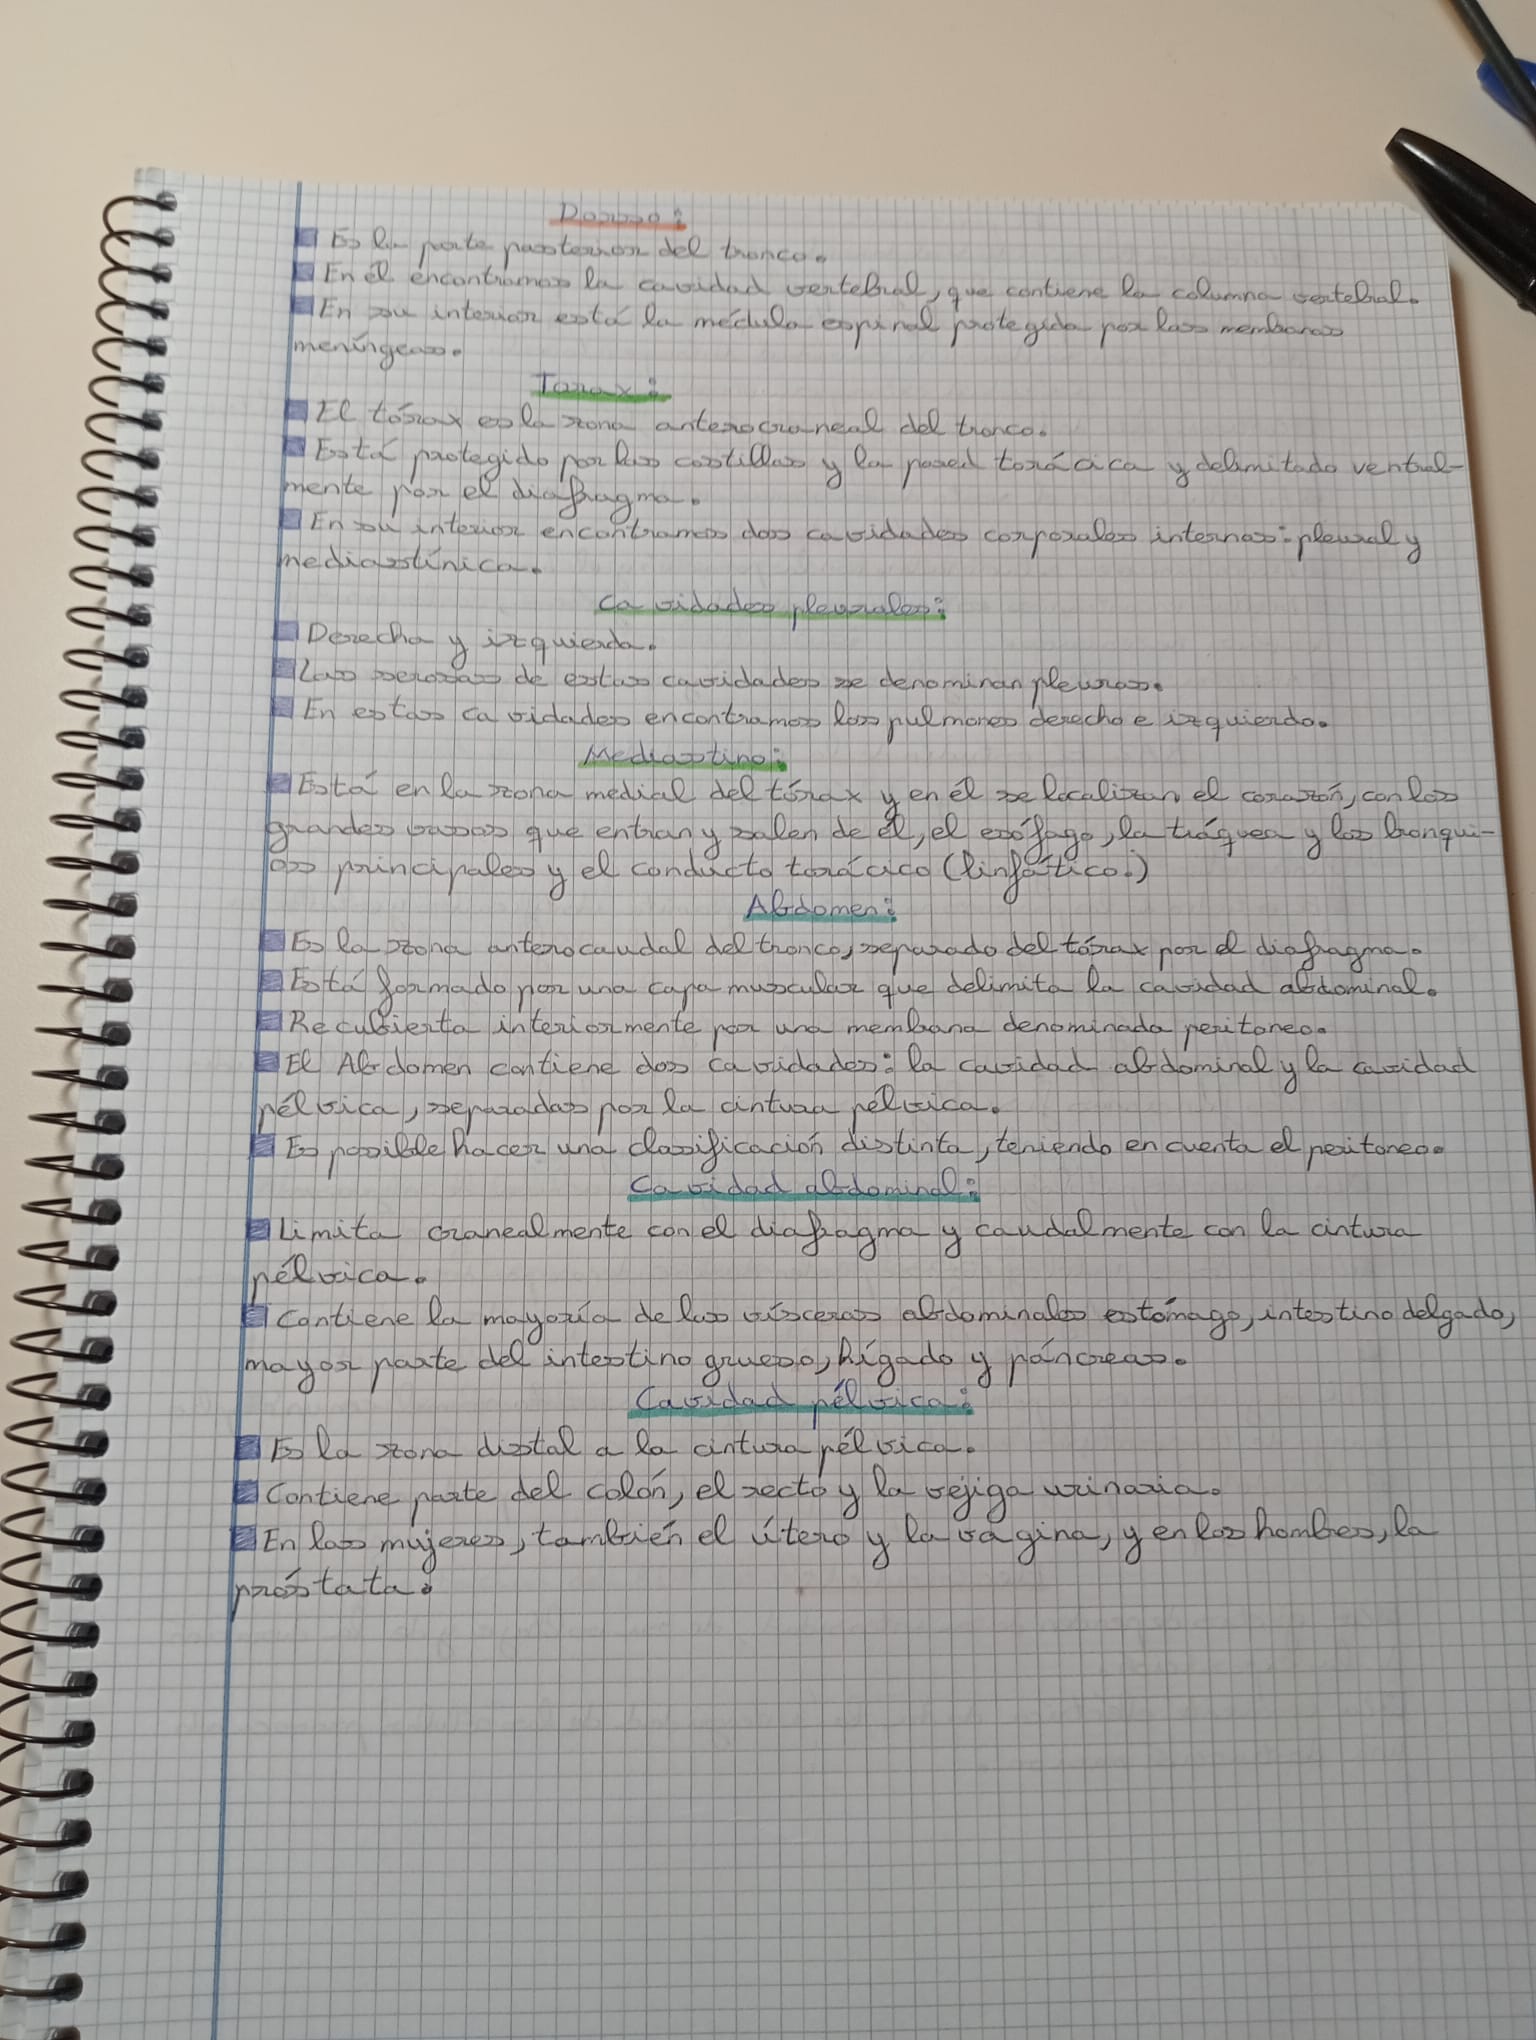 Dorso:
Es la parte posterior del tronco.
En él encontramos la cavidad vertebral, que contiene la columna vertebral.
En su interior está la médula espinal protegida por las membranas
meníngeas.
Torax:
El tórax es la zona anterocraneal del tronco.
Está protegido por las costillas y la pared torácica y delimitado ventral-
mente por el diafragma.
En su interior encontramos dos cavidades corporales internas: pleural y
mediastínica.
Cavidades pleurales:
Derecha y izquierda.
Las serosas de estas cavidades se denominan pleuras.
En estas cavidades encontramos los pulmones derecho e izquierdo.
Mediastino:
Está en la zona medial del tórax y en él se localizan el corazón, con los
grandes vasos que entran y salen de él, el esófago, la tráquea y los bronqui-
os principales y el conducto torácico (linfático.)
Abdomen:
Es la zona anterocaudal del tronco, separado del tórax por el diafragma.
Está formado por una capa muscular que delimita la cavidad abdominal.
Recubierta interiormente por una membrana denominada peritoneo.
El Abdomen contiene dos cavidades: la cavidad abdominal y la cavidad
pélvica, separadas por la cintura pélvica.
Es posible hacer una clasificación distinta, teniendo en cuenta el peritoneo.
Cavidad abdominal:
Limita cranealmente con el diafragma y caudalmente con la cintura
pélvica.
Contiene la mayoría de las vísceras abdominales estómago, intestino delgado,
mayor parte del intestino grueso, hígado y páncreas.
Cavidad pélvica:
Es la zona distal a la cintura pélvica.
Contiene parte del colón, el recto y la vejiga urinaria.
En las mujeres, también el útero y la vagina, y en los hombres, la
próstata.